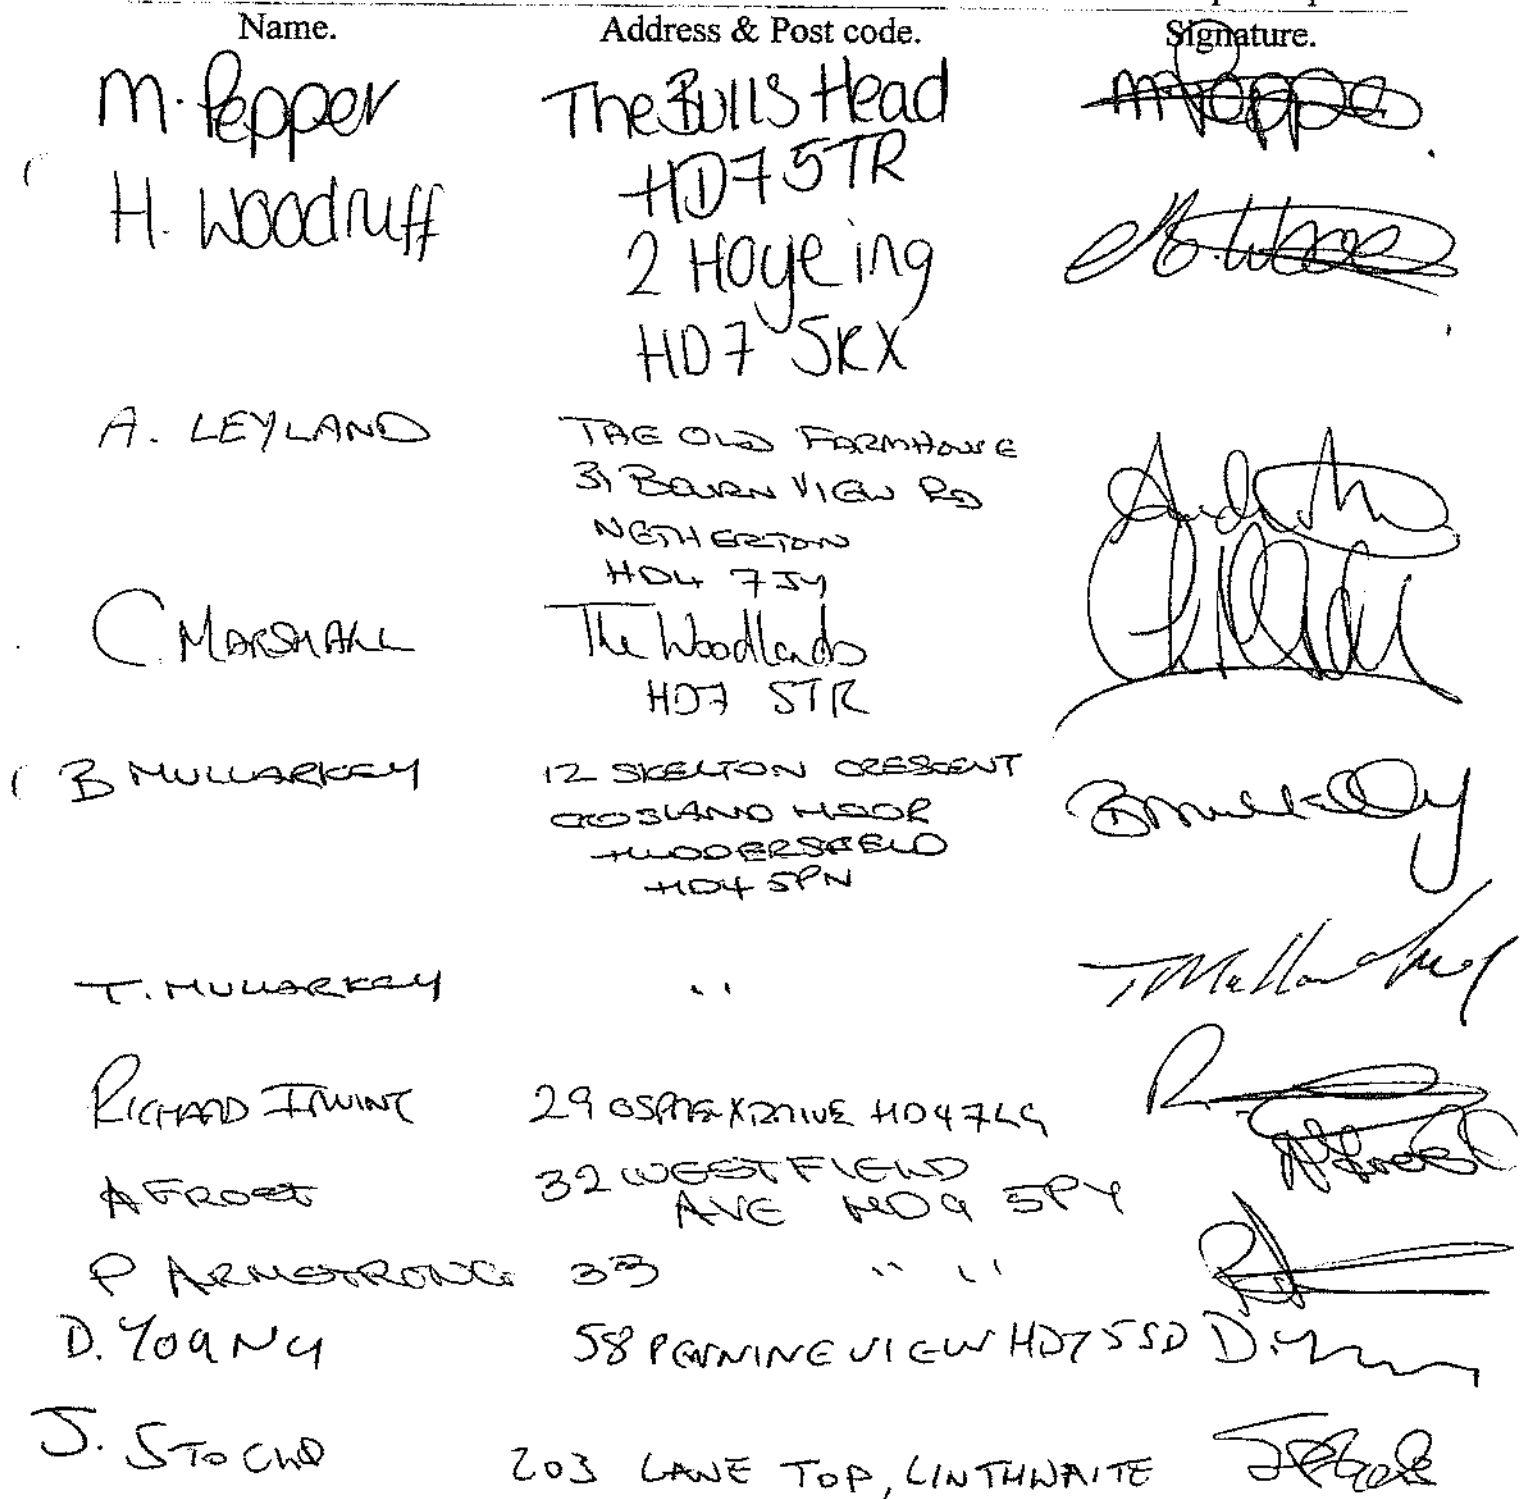 Name. Address & Post code. Signature.
M. Pepper The Bulls Head M Peppe
HD7 5TR
H. Woodruff
2 Hoyeing
HD7 5RX
A. LEYLAND THE OLD FARMHOUSE
31 BOURN VIEW RD
NETHERTON
HD4 7JY
C MARSHALL The Woodlands
HD7 5TR
B MULLARKEY 12 SKELTON CRESCENT
CROSLAND MOOR
HUDDERSFIELD
HD4 5PN
T. MULLARKEY " T Mullarkey
RICHARD IRWINE 29 OSPREY DRIVE HD4 7LG
A FROST 32 WESTFIELD A Frost
AVE HD9 5PY
P ARMSTRONG 33 " "
D. YOUNG 58 PENNINE VIEW HD7 5SD D. Y
J. 203 LANE TOP, LINTHWAITE